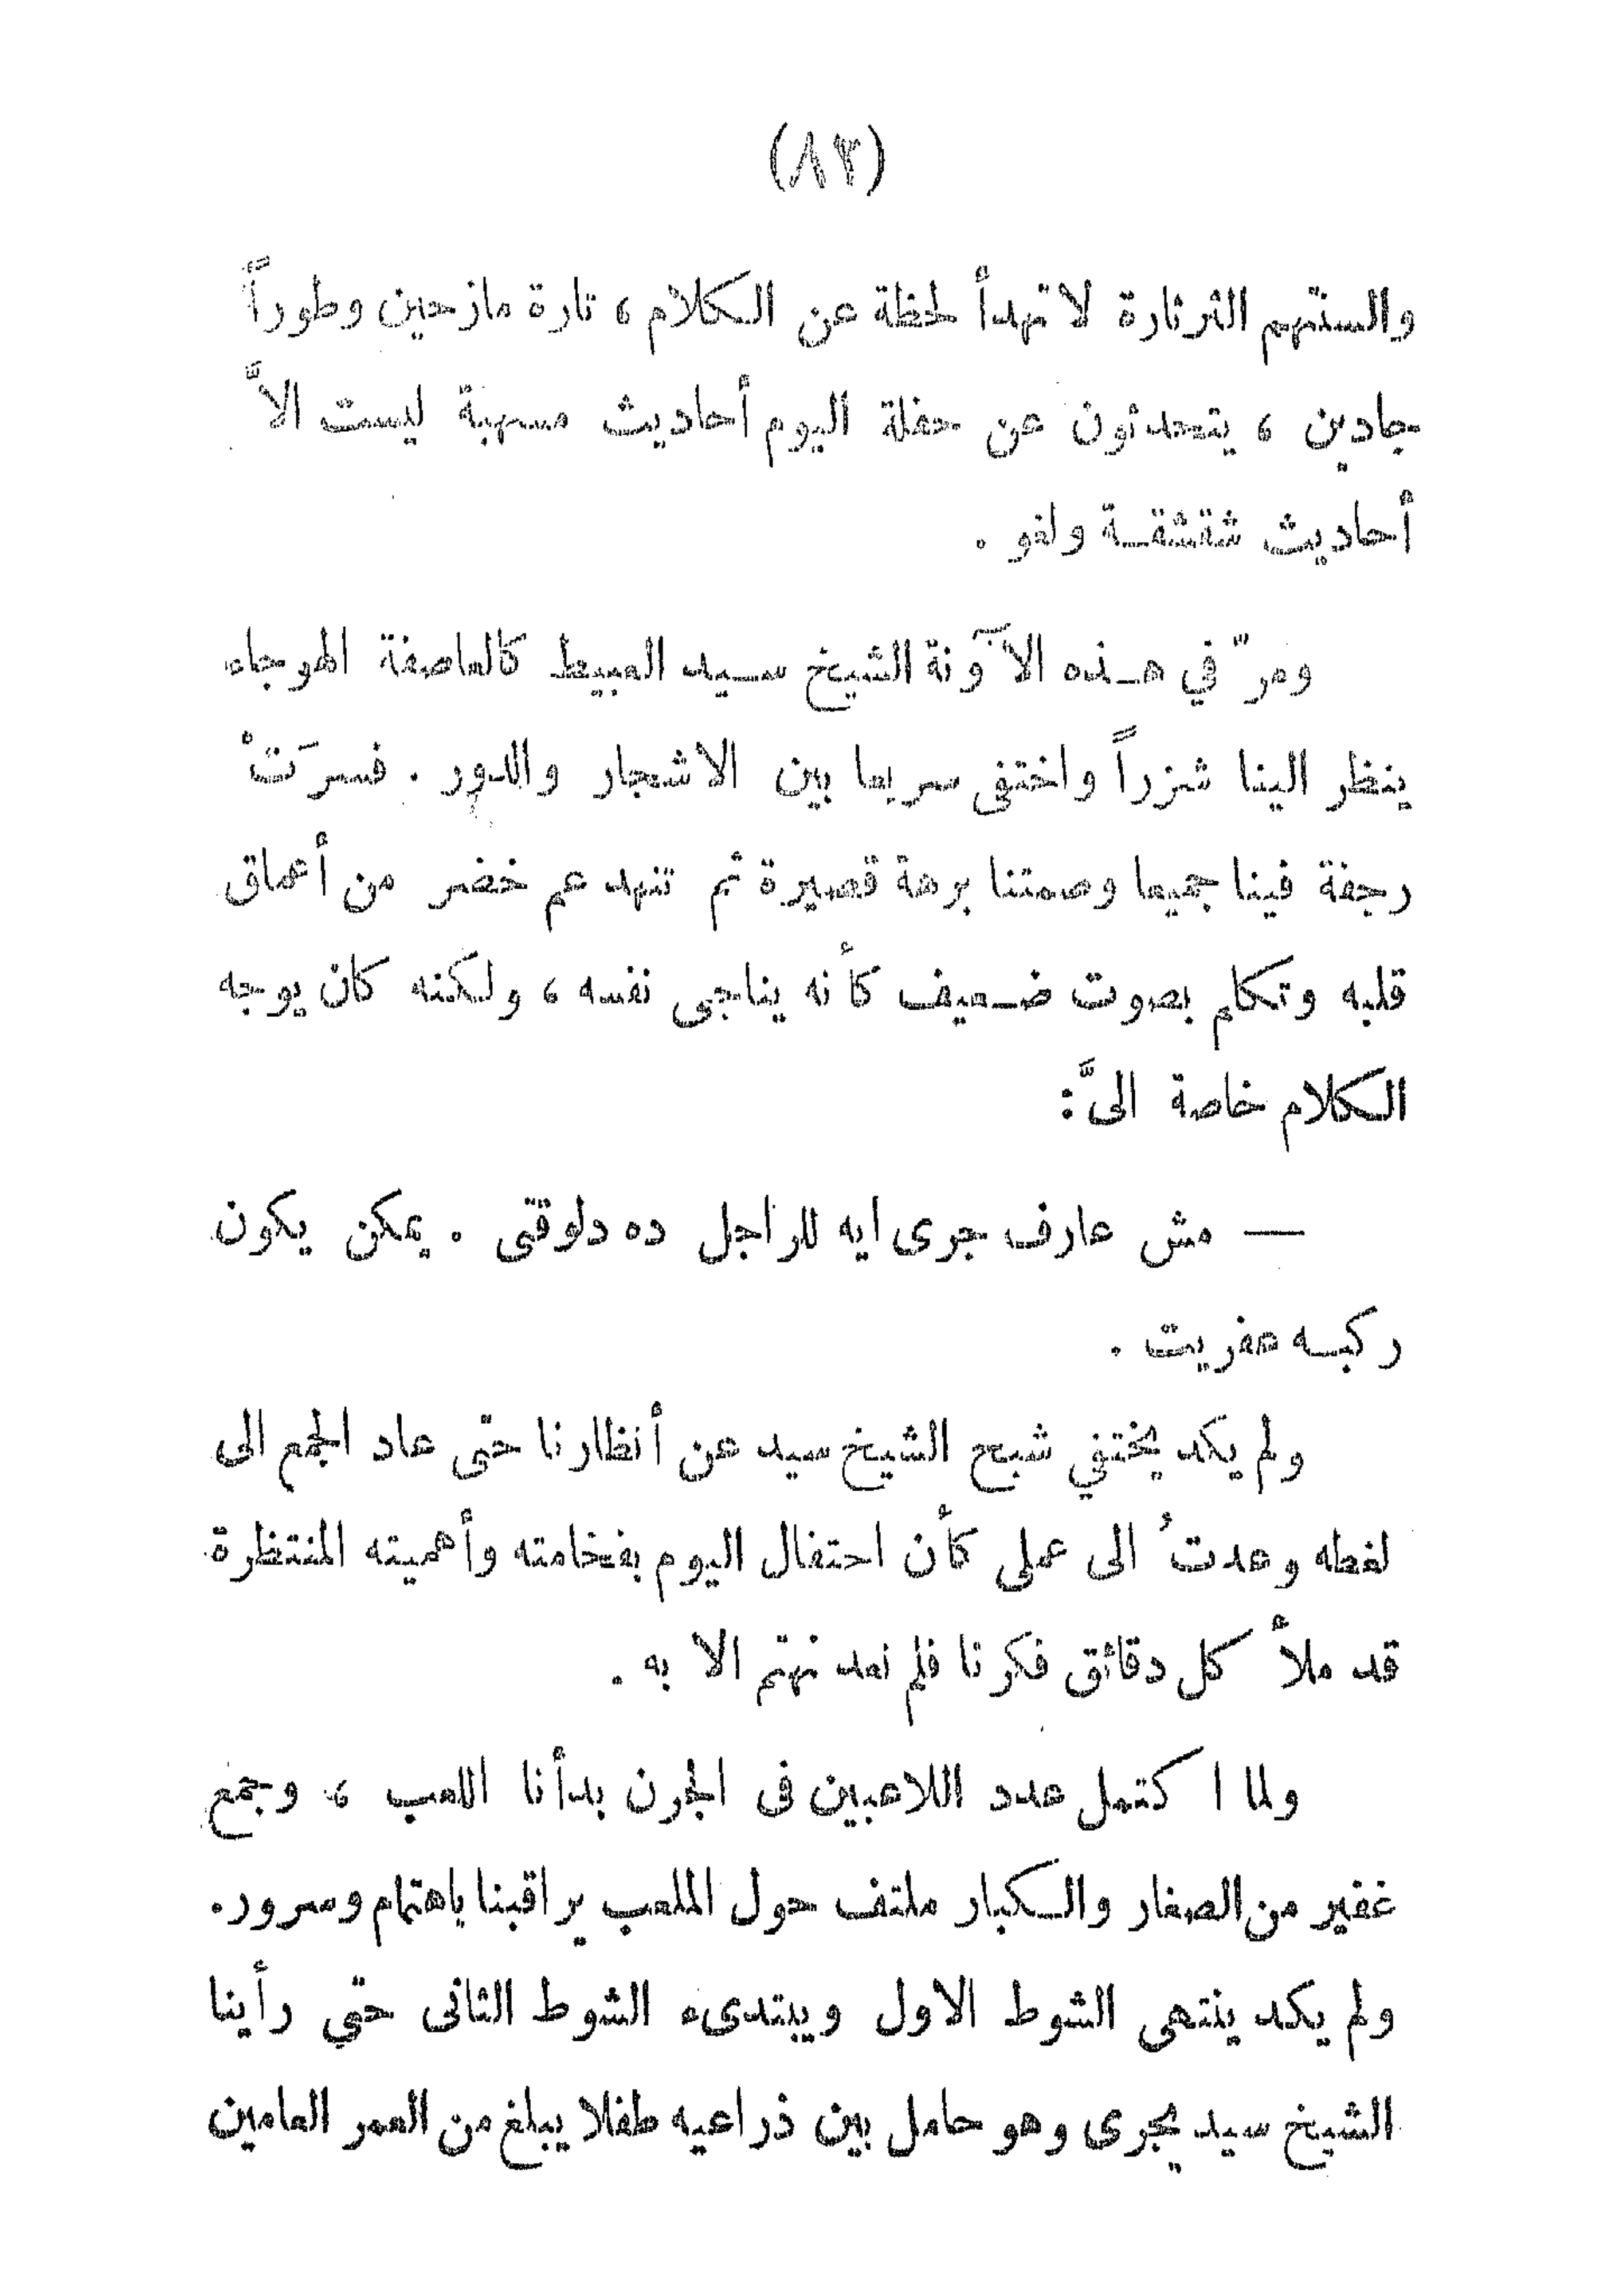 (٨٣)
والسنتهم الثرثارة لا تهدأ لحظة عن الكلام ، تارة مازحين وطوراً
جادين ، يتحدثون عن حفلة اليوم أحاديث مسهبة ليست الاَّ
أحاديث شقشقـة ولغو .
ومرّ في هـذه الآونة الشيخ سـيد العبيط كالعاصفة الهوجاء
ينظر الينا شزراً واختفى سريعا بين الاشجار والدور . فسرَتْ
رجفة فينا جميعا وصمتنا برهة قصيرة ثم تنهد عم خضر من أعماق
قلبه وتكلم بصوت ضـعيف كأنه يناجى نفسه ، ولكنه كان يوجه
الكلام خاصة الىَّ :
— مش عارف جرى ايه للراجل ده دلوقتى . يمكن يكون
ركبـه عفريت .
ولم يكد يختفي شبح الشيخ سيد عن أنظارنا حتى عاد الجمع الى
لغطه وعدتُ الى عملى كأن احتفال اليوم بفخامته وأهميته المنتظرة
قد ملأ كل دقائق فكرنا فلم نعد نهتم الا به .
ولما اكتمل عدد اللاعبين فى الجرن بدأنا اللعب ، وجمع
غفير من الصغار والـكبار ملتف حول الملعب يراقبنا باهتمام وسرور.
ولم يكد ينتهى الشوط الاول ويبتدىء الشوط الثانى حتي رأينا
الشيخ سيد يجرى وهو حامل بين ذراعيه طفلا يبلغ من العمر العامين